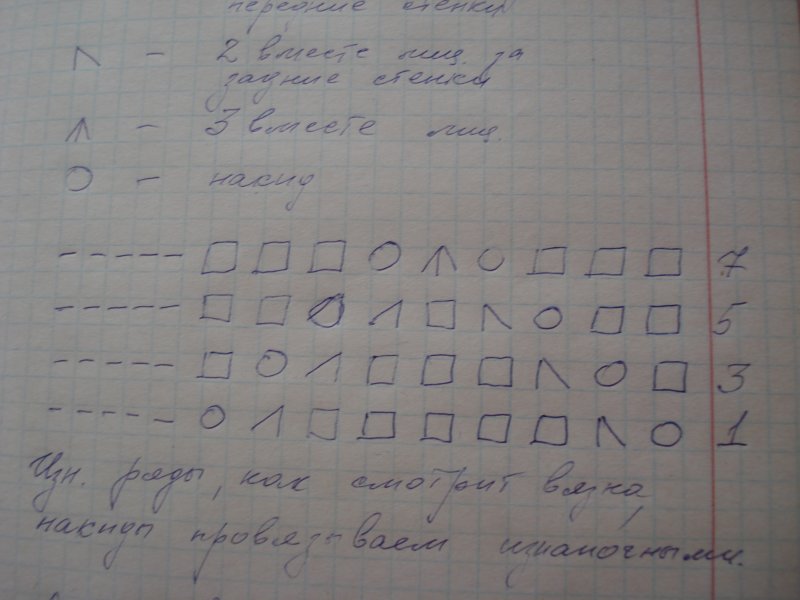 передние стенки
2 вместе лиц. за
задние стенки
3 вместе лиц.
накид
7
5
3
1
Изн. ряды, как смотрит вязка,
накиды провязываем изнаночными.